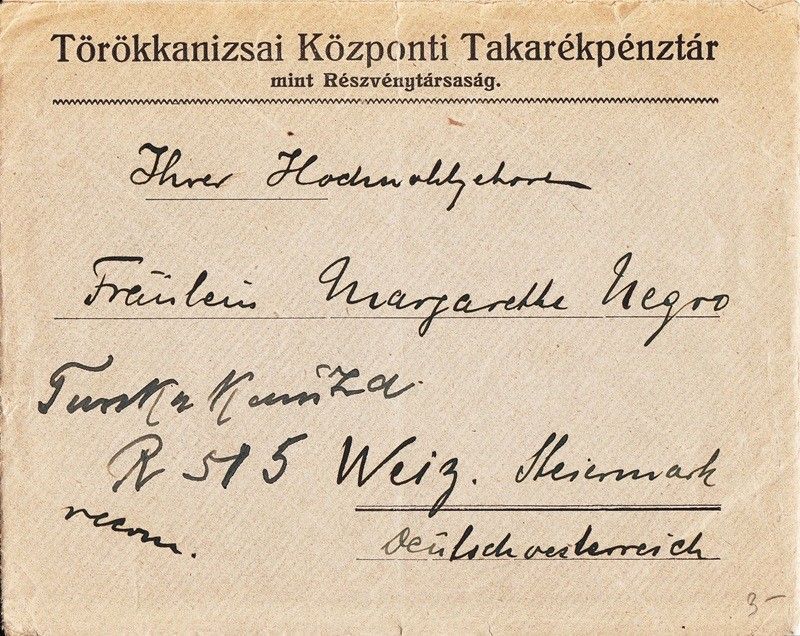 Törökkanizsai Központi Takarékpénztár
mint Részvénytársaság.
Ihrer Hochwohlgeboren
Fräulein Margarethe Negro
Turska Kanizsa
R 515 Weiz. Steiermark
recom.
Deutschoesterreich
3-